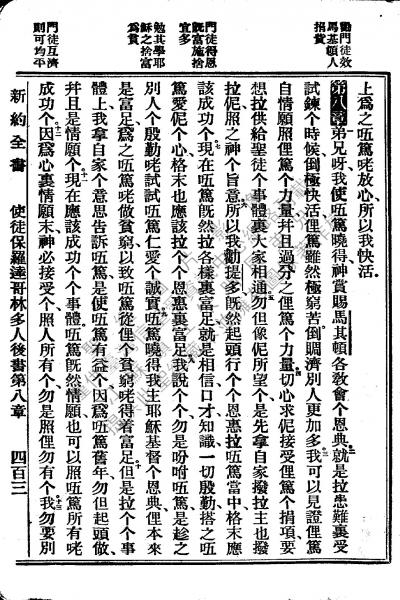 勸門徒效
馬基頓人
捐貲
門徒得恩
旣富施捨
宜多
勉其學耶
穌之捨富
爲貧
門徒互濟
則可均平
上爲之㑚篤咾放心所以我快活
第八章弟兄呀我使㑚篤曉得神賞賜馬其頓各敎會个恩典就是拉患難裏受
試鍊个時候倒極快活俚篤雖然極窮苦倒賙濟別人更加多我可以見證俚篤
自情願照俚篤个力量幷且過分之俚篤个力量切心求伲接受俚篤个捐項要
想拉供給聖徒个事體裏大家相通勿但像伲所望个是先拿自家撥拉主也撥
拉伲照之神个旨意所以我勸提多旣然起頭行个个恩惠拉㑚篤當中格末應
該成功个現在㑚篤旣然拉各樣裏富足就是相信口才知識一切殷勤搭之㑚
篤愛伲个心格末也應該拉个个恩惠裏富足我說个个勿是吩咐㑚篤是趁之
別人个殷勤咾試試㑚篤仁愛个誠實㑚篤曉得我主耶穌基督个恩典俚本來
是富足爲之㑚篤咾做貧窮以致㑚篤從俚个貧窮咾得着富足但是拉个个事
體上我拿自家个意思告訴㑚篤是使㑚篤有益个因爲㑚篤舊年勿但起頭做
幷且是情願个現在應該成功个个事體㑚篤旣然情願也可以照㑚篤所有咾
成功个因爲心裏情願末神必接受个照人所有个勿是照俚勿有个我勿要別
新約全書
使徒保羅達哥林多人後書第八章
四百三